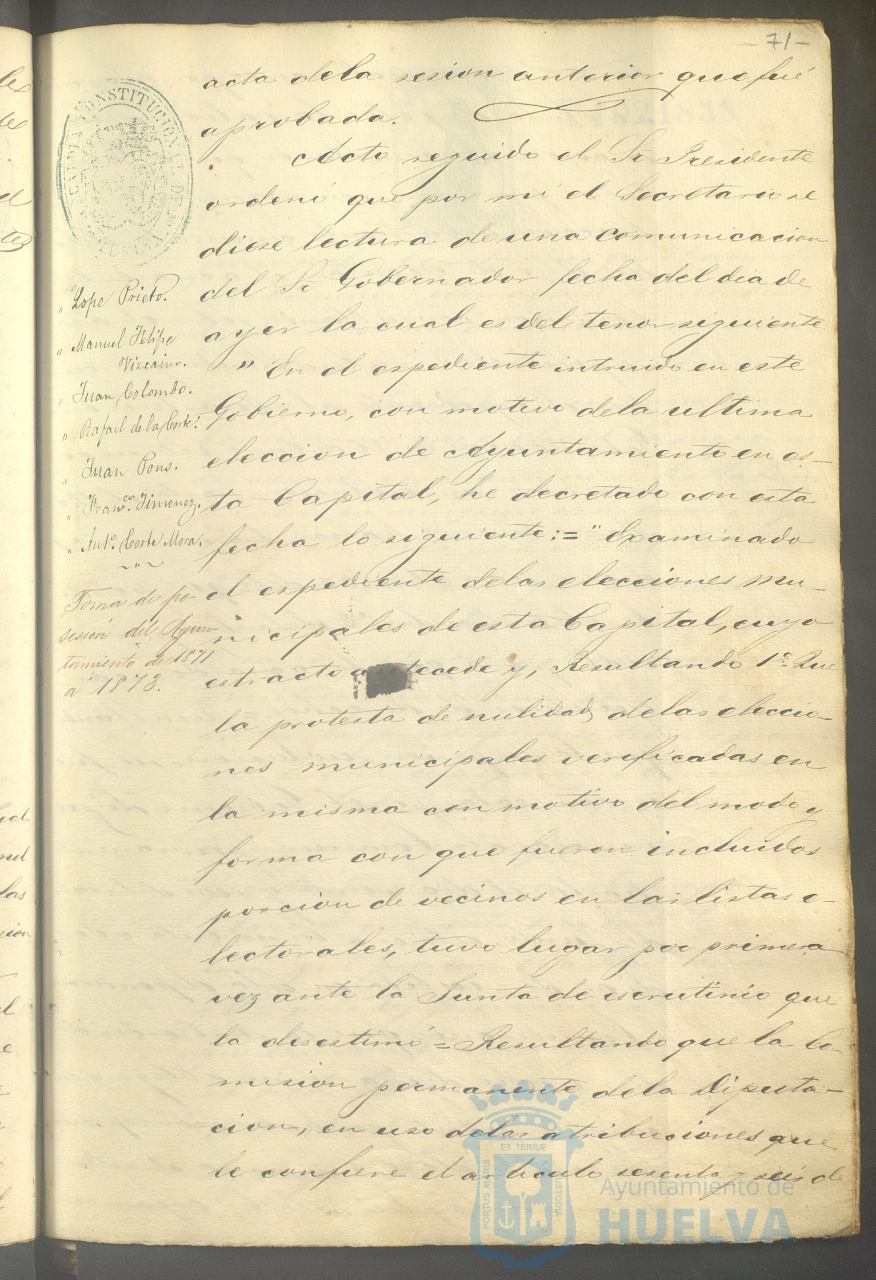 -71-
ALCALDIA CONSTITUCIONAL DE HUELVA
" Lope Prieto.
" Manuel Felipe
Vizcaino.
" Juan Colombo.
" Rafael de la Corte.
" Juan Pons.
" Franco. Jimenez.
" Anto. Corte Mora.
Toma de po-
sesión del Ayun-
tamiento de 1871
á 1873.
acta dela sesion anterior que fué
aprobada.
Acto seguido el Sr Presidente
ordenó que por mi el Secretario se
diese lectura de una comunicacion
del Sr Gobernador fecha del dia de
ayer la cual es del tenor siguiente
" En el espediente intruido en este
Gobierno, con motivo dela ultima
eleccion de Ayuntamiento en es-
ta Capital, he decretado con esta
fecha lo siguiente:=" Examinado
el espediente delas elecciones mu-
nicipales de esta Capital, cuyo
estracto antecede y, Resultando 1º Que
la protesta de nulidad delas eleccio-
nes municipales verificadas en
la misma con motivo del modo y
forma con que fueron incluidos
porcion de vecinos en las listas e-
lectorales, tuvo lugar por primera
vez ante la Junta de escrutinio que
la desestimó = Resultando que la Co-
mision permanente dela Diputa-
cion, en uso delas atribuciones que
le confiere el articulo sesenta y seis de
PORTUS MARIS ET TERRÆ CUSTODIA
Ayuntamiento de
HUELVA